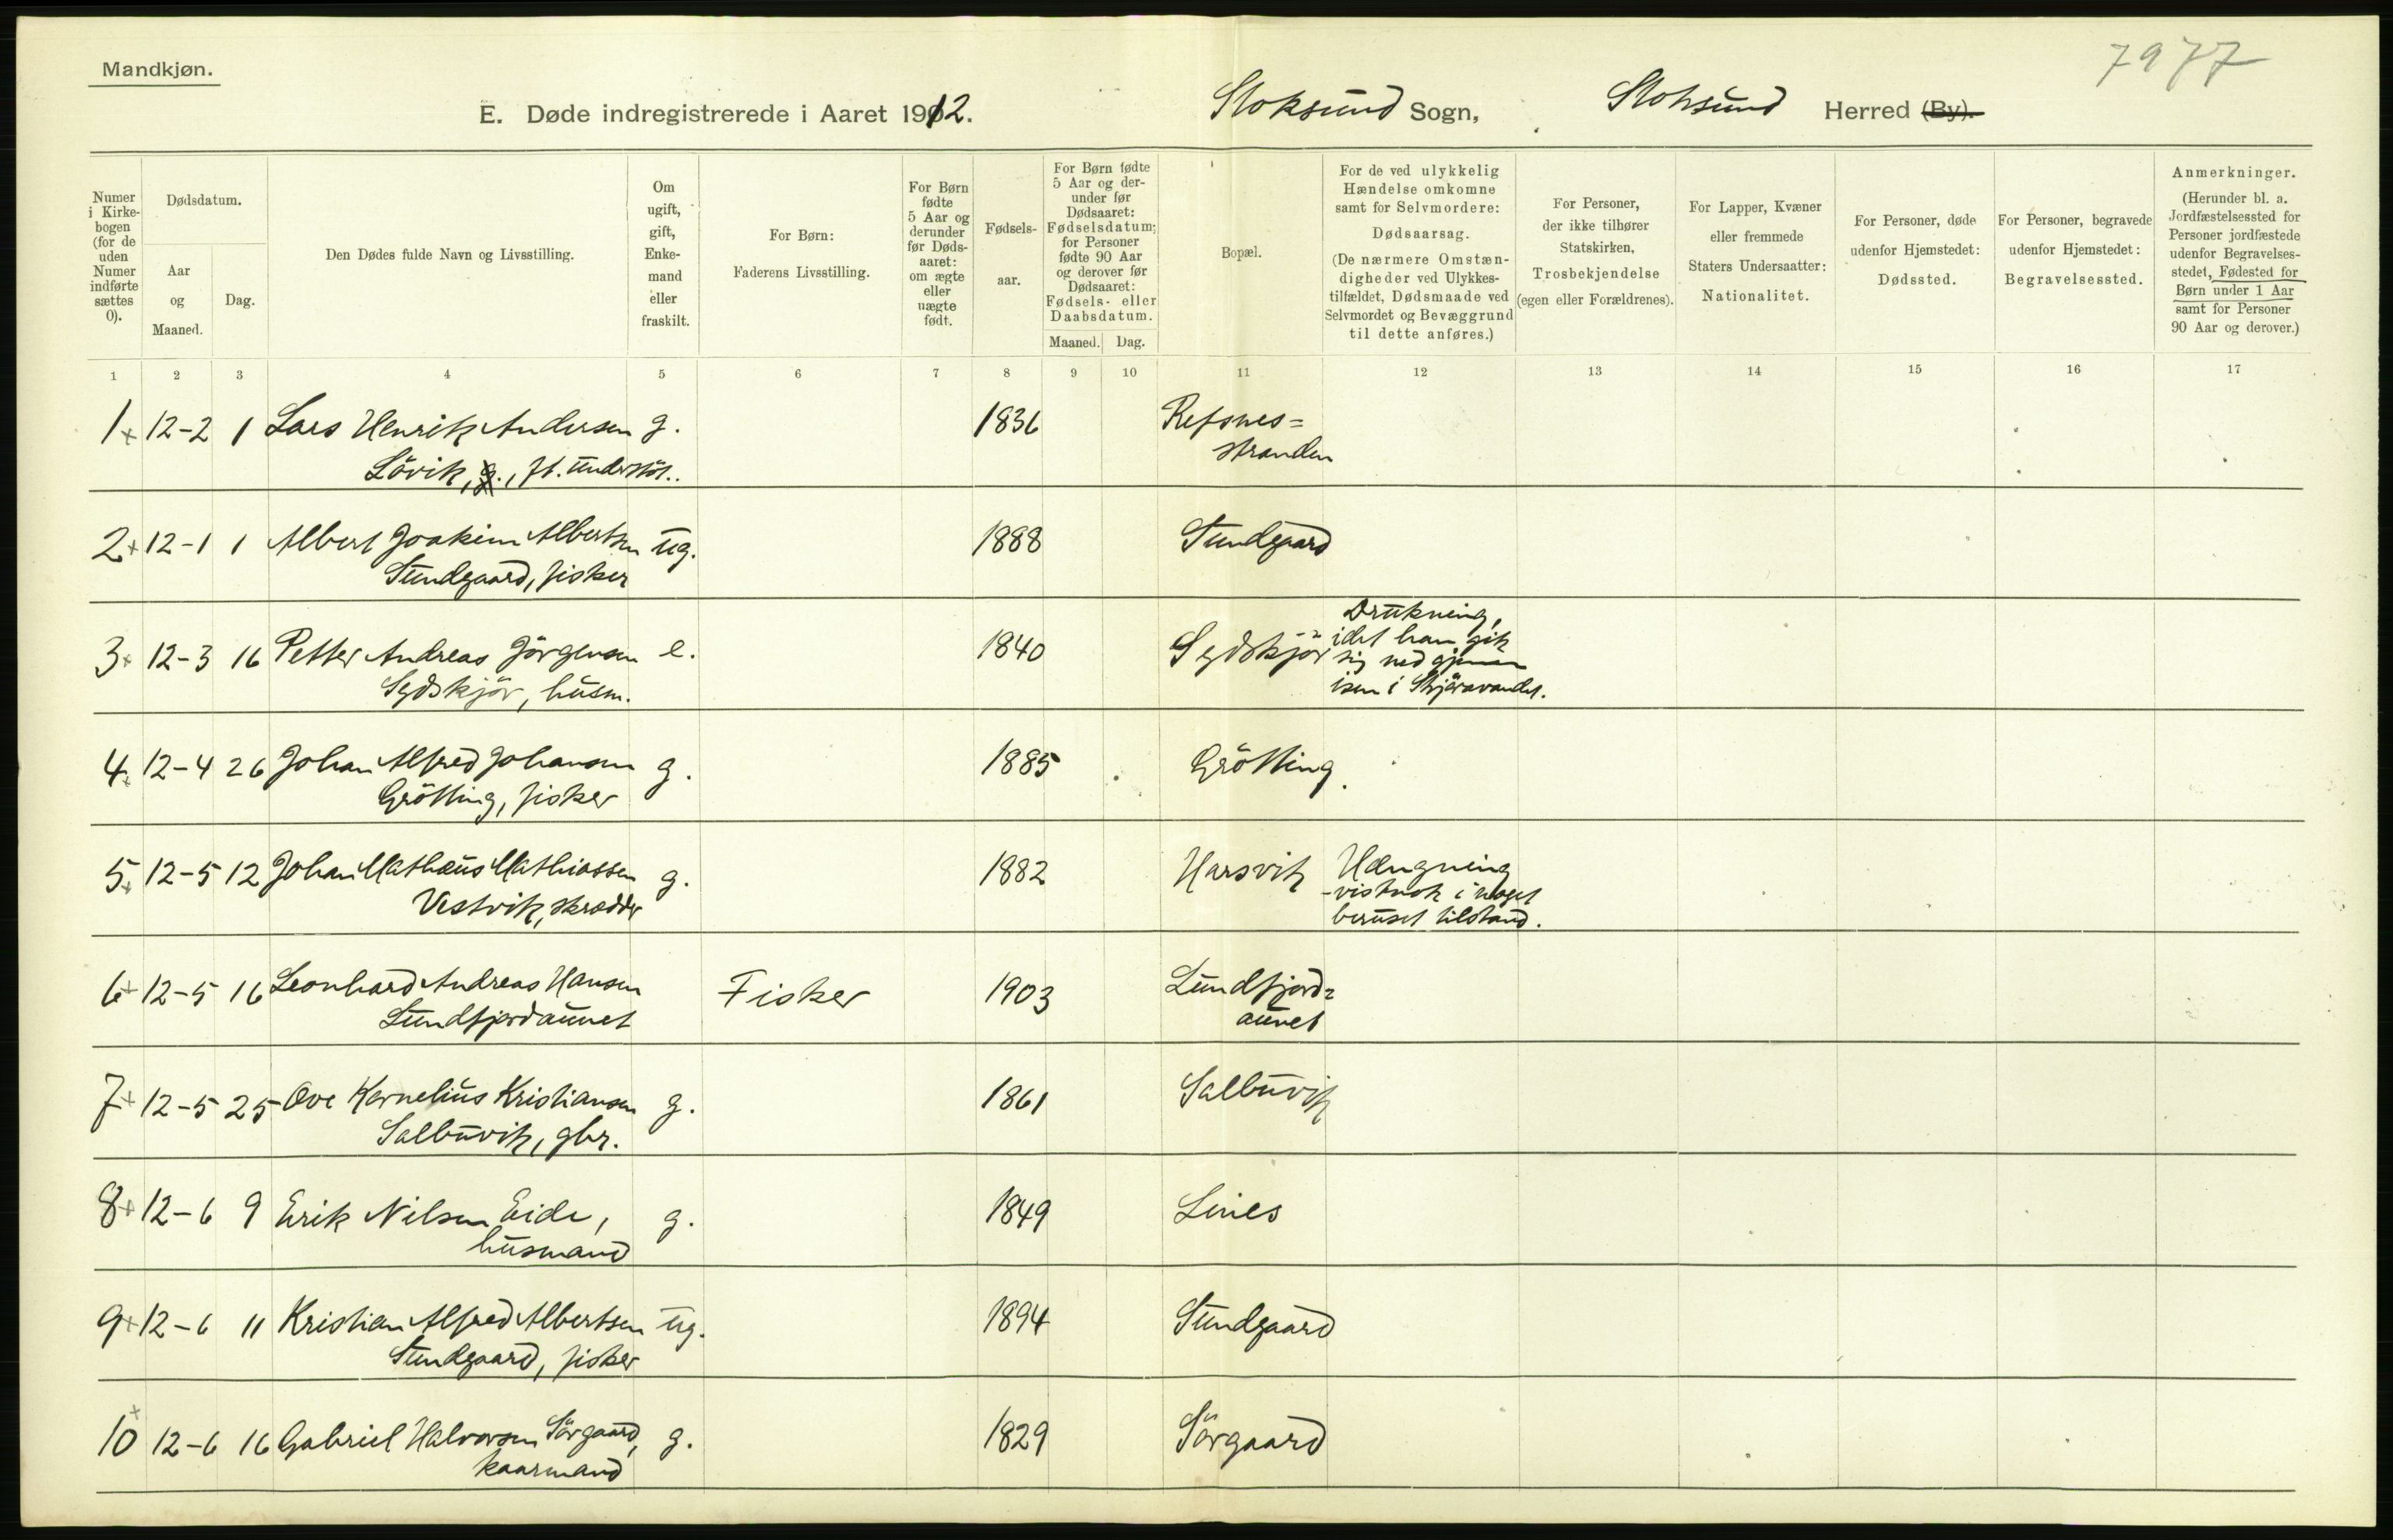 Mandkjøn.
7977
E. Døde indregistrerede i Aaret 1912. Stoksund Sogn, Stoksund Herred (By).
Numer i Kirkebogen (for de uden Numer indførte sættes 0).
Dødsdatum.
Aar og Maaned.
Dag.
Den Dødes fulde Navn og Livsstilling.
Om ugift, gift, Enkemand eller fraskilt.
For Børn: Faderens Livsstilling.
For Børn fødte 5 Aar og derunder før Dødsaaret: om ægte eller uægte født.
Fødselsaar.
For Børn fødte 5 Aar og derunder før Dødsaaret: Fødselsdatum; for Personer fødte 90 Aar og derover før Dødsaaret: Fødsels- eller Daabsdatum.
Maaned. Dag.
Bopæl.
For de ved ulykkelig Hændelse omkomne samt for Selvmordere: Dødsaarsag. (De nærmere Omstændigheder ved Ulykkestilfældet, Dødsmaade ved Selvmordet og Bevæggrund til dette anføres.)
For Personer, der ikke tilhører Statskirken, Trosbekjendelse (egen eller Forældrenes).
For Lapper, Kvæner eller fremmede Staters Undersaatter: Nationalitet.
For Personer, døde udenfor Hjemstedet: Dødssted.
For Personer, begravede udenfor Hjemstedet: Begravelsessted.
Anmerkninger. (Herunder bl. a. Jordfæstelsessted for Personer jordfæstede udenfor Begravelsesstedet, Fødested for Børn under 1 Aar samt for Personer 90 Aar og derover.)
1 2 3 4 5 6 7 8 9 10 11 12 13 14 15 16 17
1 12-2 1 Lars Henrik Andersen g. 1836 Refsnes=
Lövik, g., ft. understöt. stranden
2 12-1 1 Albert Joakim Albertsen ug. 1888 Sundgaard
Sundgaard, fisker
3 12-3 16 Petter Andreas Jörgensen e. 1840 Sydskjör Drukning,
Sydskjör, husm. idet han gik
sig ned gjennem
isen i Skjöravandet.
4 12-4 26 Johan Alfred Johansen g. 1885 Grötting
Grötting, fisker
5 12-5 12 Johan Mathæus Mathiassen g. 1882 Harsvik Hængning
Vestvik, skrædder -vistnok i noget
beruset tilstand.
6 12-5 16 Leonhard Andreas Hansen Fisker 1903 Lundfjord=
Lundfjordaunet aunet
7 12-5 25 Ove Kornelius Kristiansen g. 1861 Salbuvik
Salbuvik, gbr.
8 12-6 9 Erik Nilsen Eide, g. 1849 Lines
husmand
9 12-6 11 Kristian Alfred Albertsen ug. 1894 Sundgaard
Sundgaard, fisker
10 12-6 16 Gabriel Halvorsen Sörgaard, g. 1829 Sörgaard
kaarmand